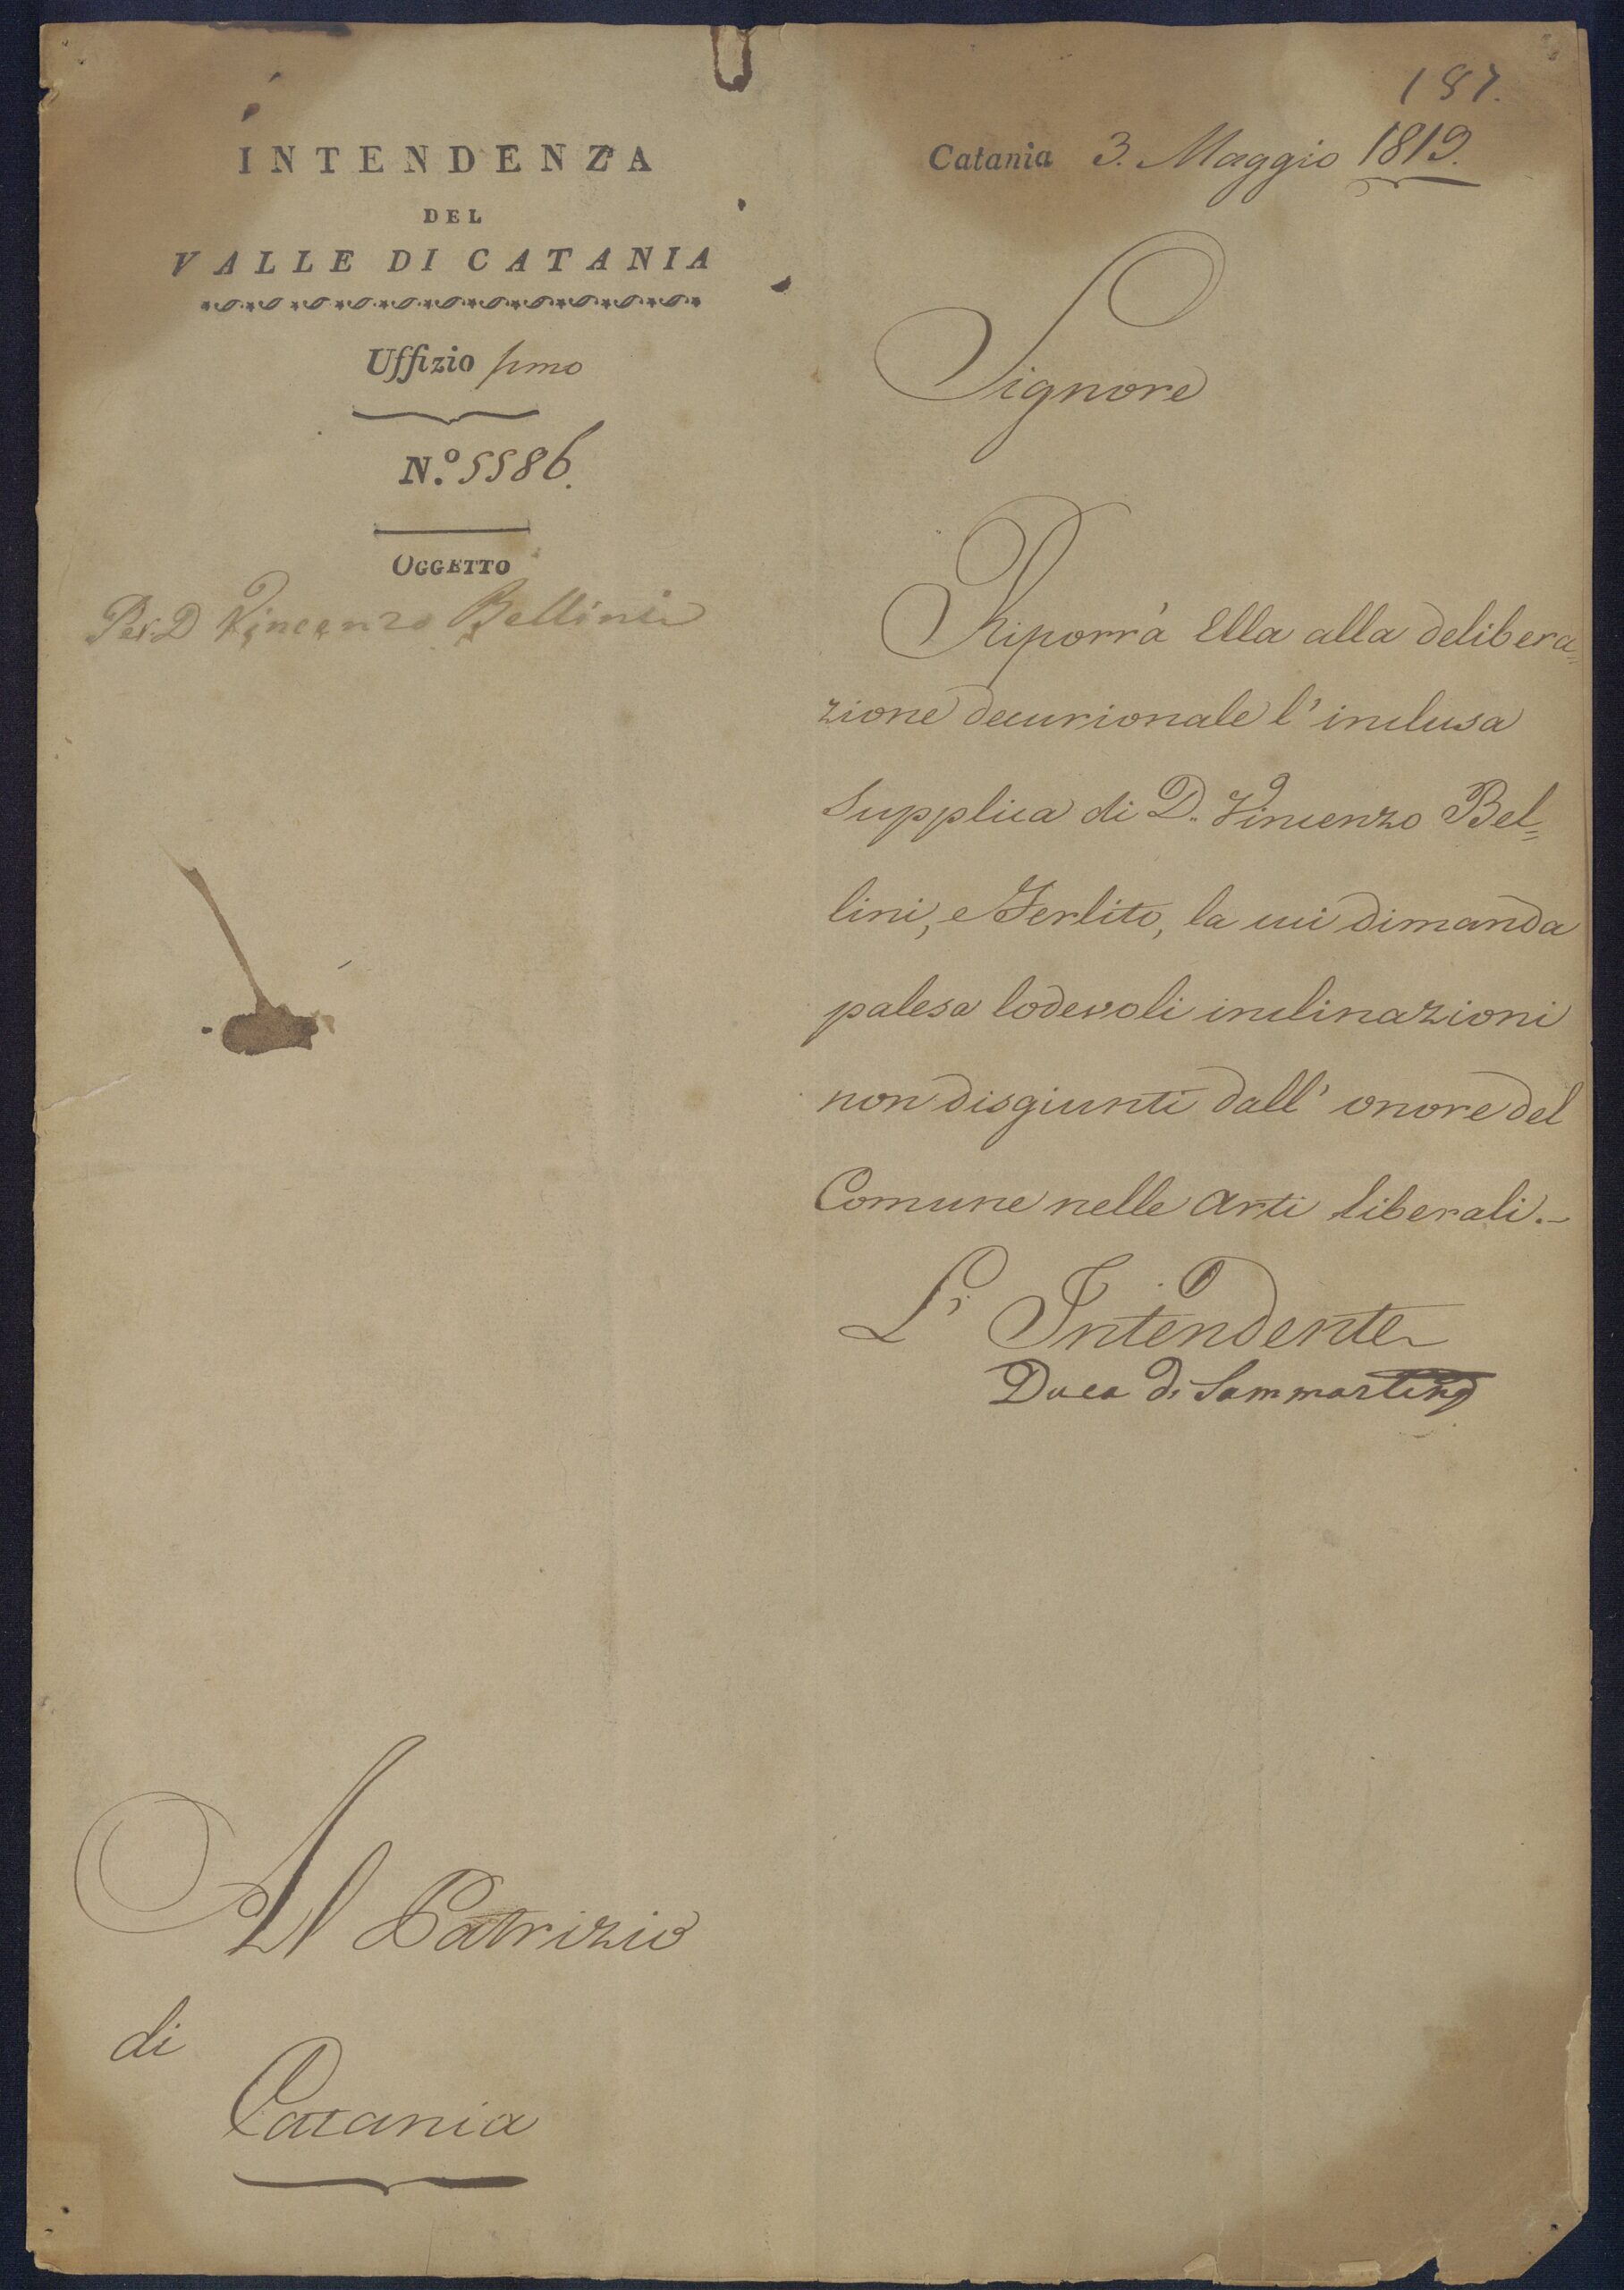 INTENDENZA
DEL
VALLE DI CATANIA
Uffizio pmo
N.º 5586.
OGGETTO
Per D Vincenzo Bellini
Al Patrizio
di
Catania
187.
Catania 3. Maggio 1819.
Signore
Riporrà Ella alla delibera=
zione decurionale l' inclusa
supplica di D. Vincenzo Bel=
lini, e Ferlito, la cui dimanda
palesa lodevoli inclinazioni
non disgiunti dall' onore del
Comune nelle arti liberali.-
L' Intendente
Duca di Sammartino